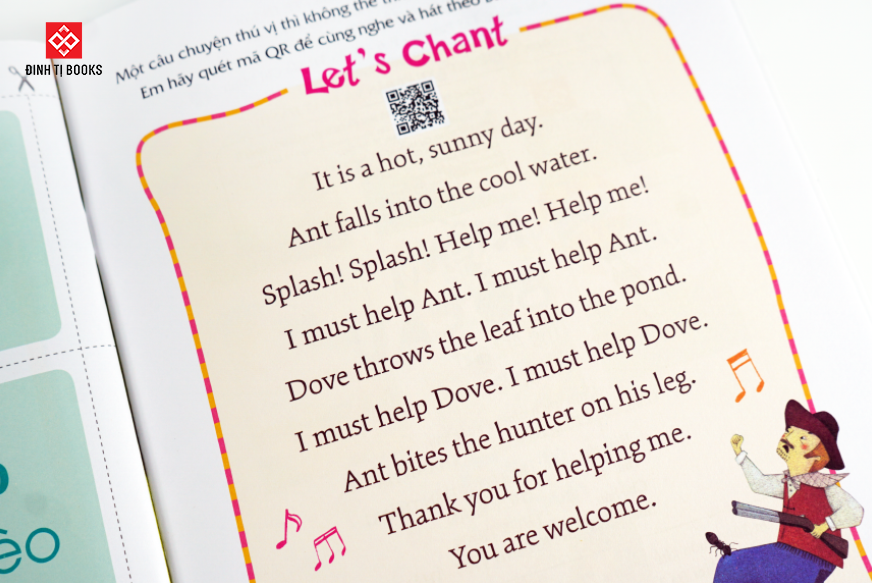 ĐINH TỊ BOOKS
Một câu chuyện thú vị thì không thể
Em hãy quét mã QR để cùng nghe và hát theo
Let's Chant
It is a hot, sunny day.
Ant falls into the cool water.
Splash! Splash! Help me! Help me!
I must help Ant. I must help Ant.
Dove throws the leaf into the pond.
I must help Dove. I must help Dove.
Ant bites the hunter on his leg.
Thank you for helping me.
You are welcome.